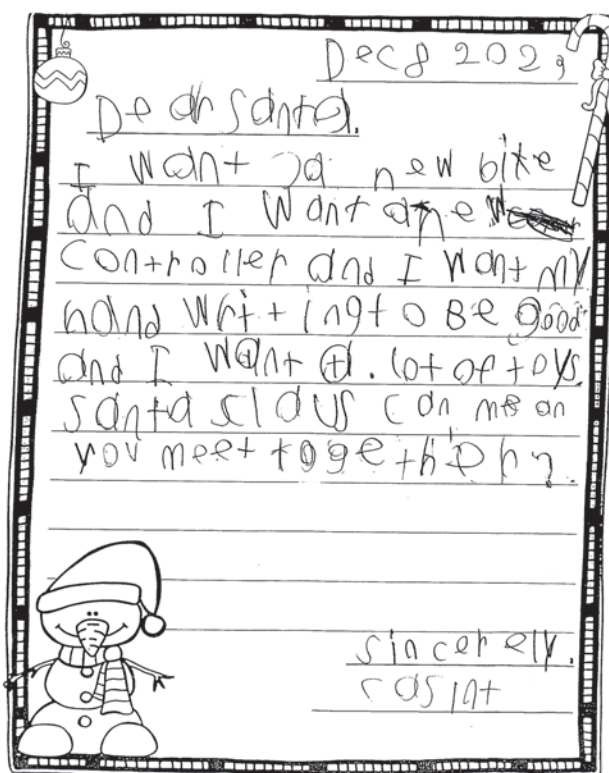 Dec 8 2023
Dear Santa.
I want a new bike
and I want a new
controller and I want my
hand writting to Be good
and I want a. lot of toys.
santa slaus can me an
you meet together?
sincerely.